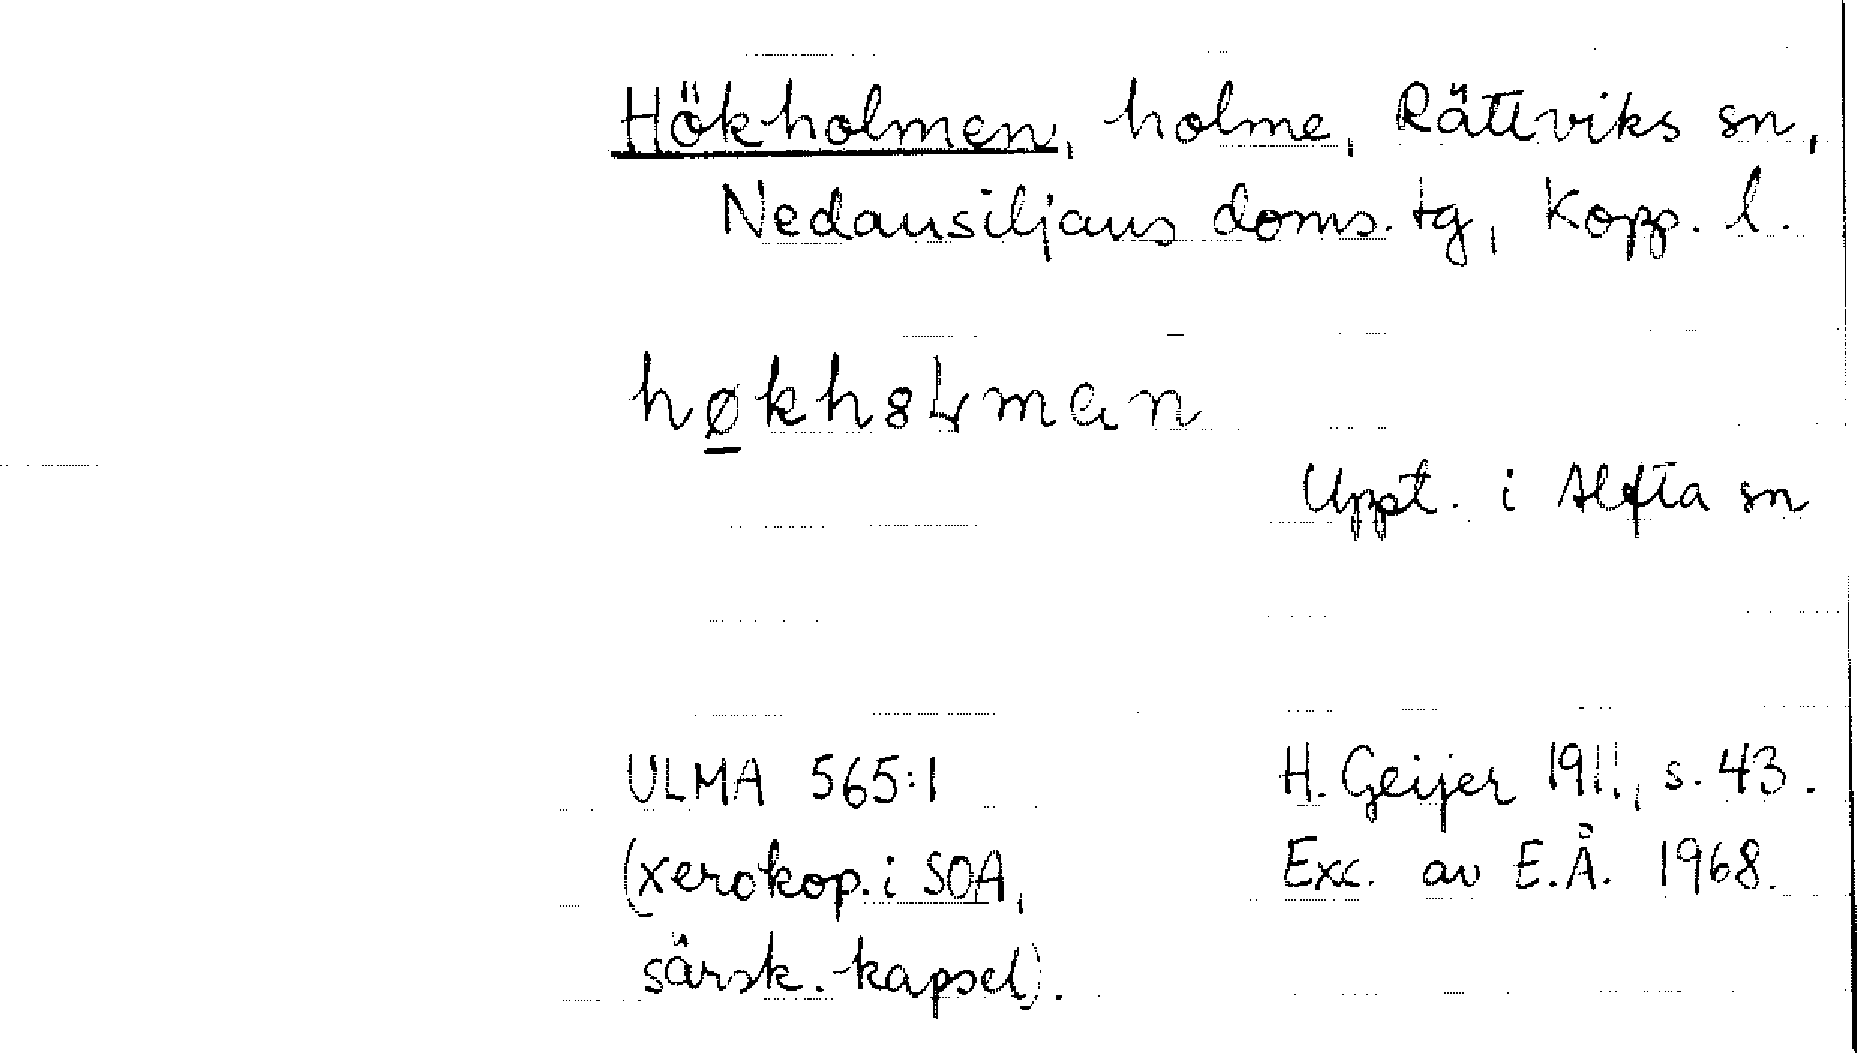 Hökholmen, holme, Rättviks sn,
Nedansiljans doms. tg, Kopp. l.
Uppt. i Alfta sn
ULMA 565:1
H. Geijer 1911, s. 43.
(xerokop. i SOA,
Exc. av E.Å. 1968.
särsk. kapsel).